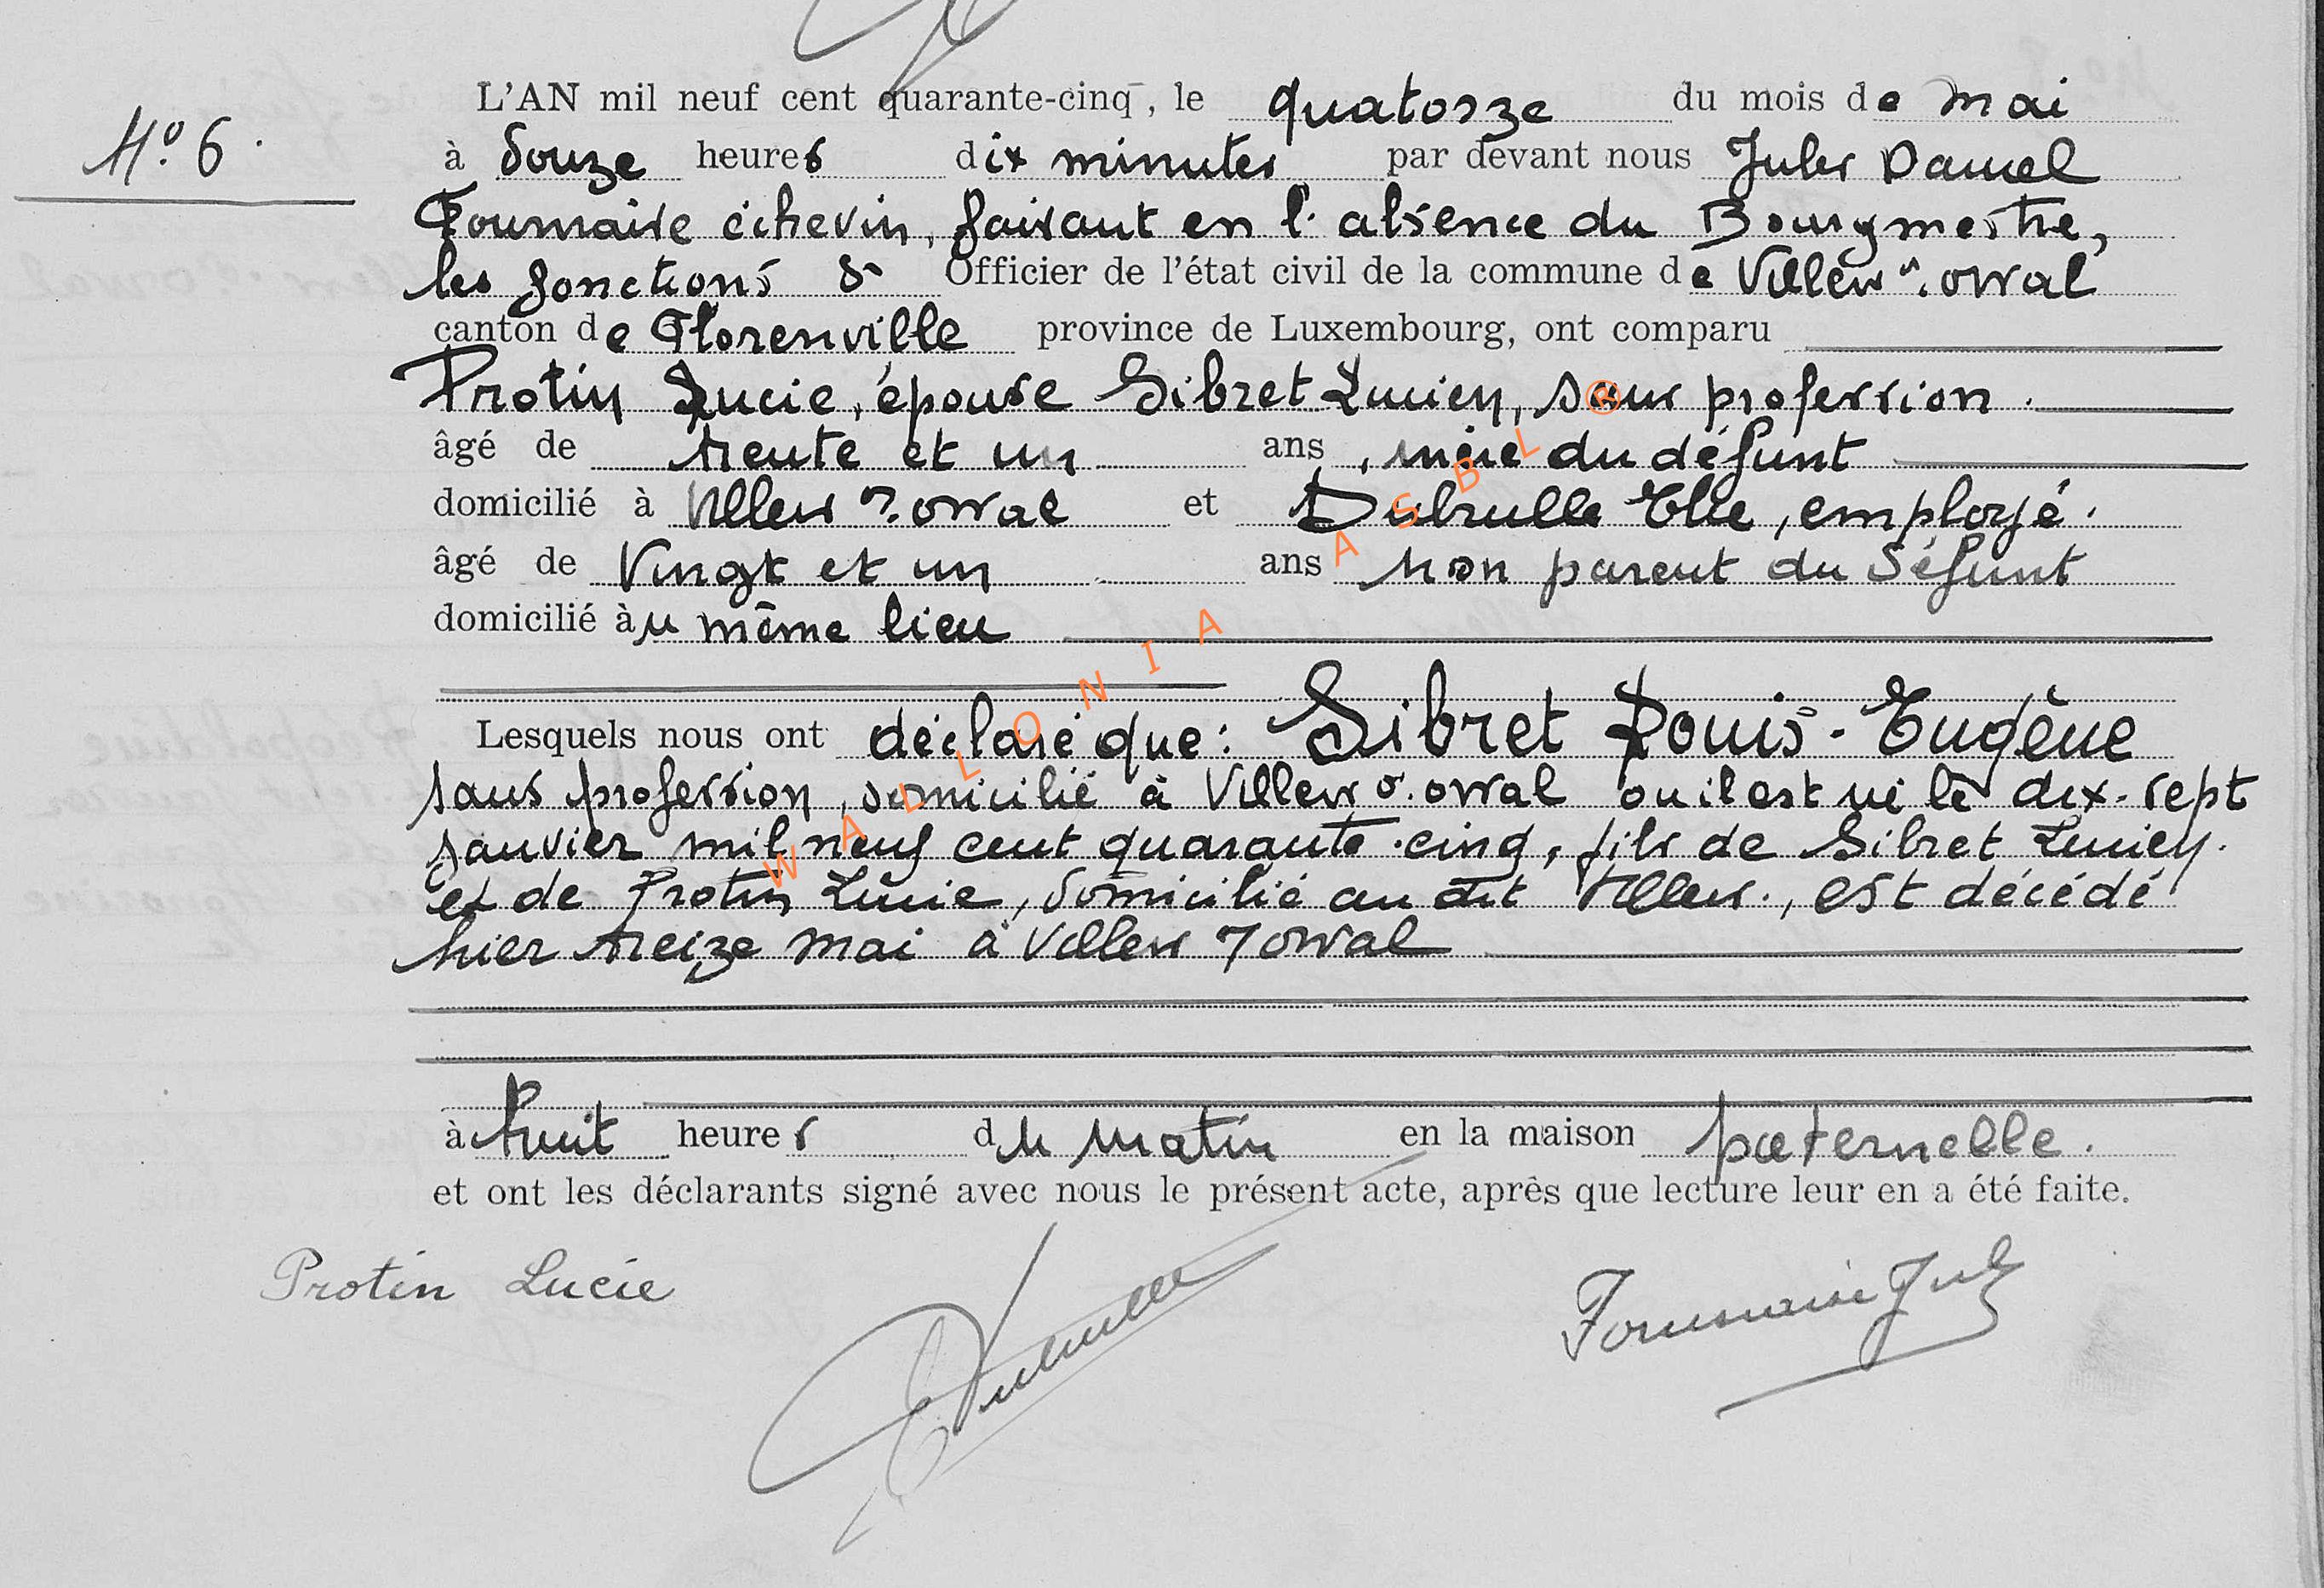 L'AN mil neuf cent quarante-cinq, le quatorze du mois de mai
N° 6.
à douze heures dix minutes par devant nous Jules Daniel
Foumaire échevin, faisant en l'absence du Bourgmestre,
les fonctions d' Officier de l'état civil de la commune de Villers dt. orval
canton de Florenville province de Luxembourg, ont comparu
Protin Lucie, épouse Sibret Lucien, sans profession.
âgé de trente et un ans, mère du défunt
domicilié à Villers dt. orval et Dubrulle Elie, employé.
âgé de Vingt et un ans non parent du défunt
domicilié àu même lieu
Lesquels nous ont déclaré que: Sibret Louis-Eugène
sans profession, domicilié à Villers dt. orval ou il est né le dix-sept
janvier mil neuf cent quarante-cinq, fils de Sibret Lucien.
et de Protin Lucie, domicilié au dit Villers., est décédé
hier treize mai à Villers dt orval
à huit heures du matin en la maison paternelle.
et ont les déclarants signé avec nous le présent acte, après que lecture leur en a été faite.
Protin Lucie Dubrulle Foumaire Jul
WALLONIA ASBL ®